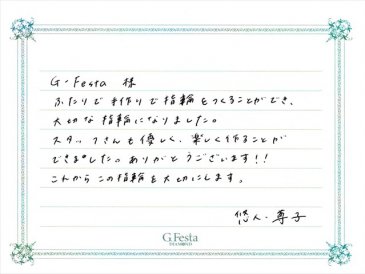 G・Festa 様
ふたりで手作りで指輪をつくることができ、
大切な指輪になりました。
スタッフさんも優しく、楽しく作ることが
できました。ありがとうございます!!
これからこの指輪を大切にします。
悠人・尊子
G.Festa
DIAMOND